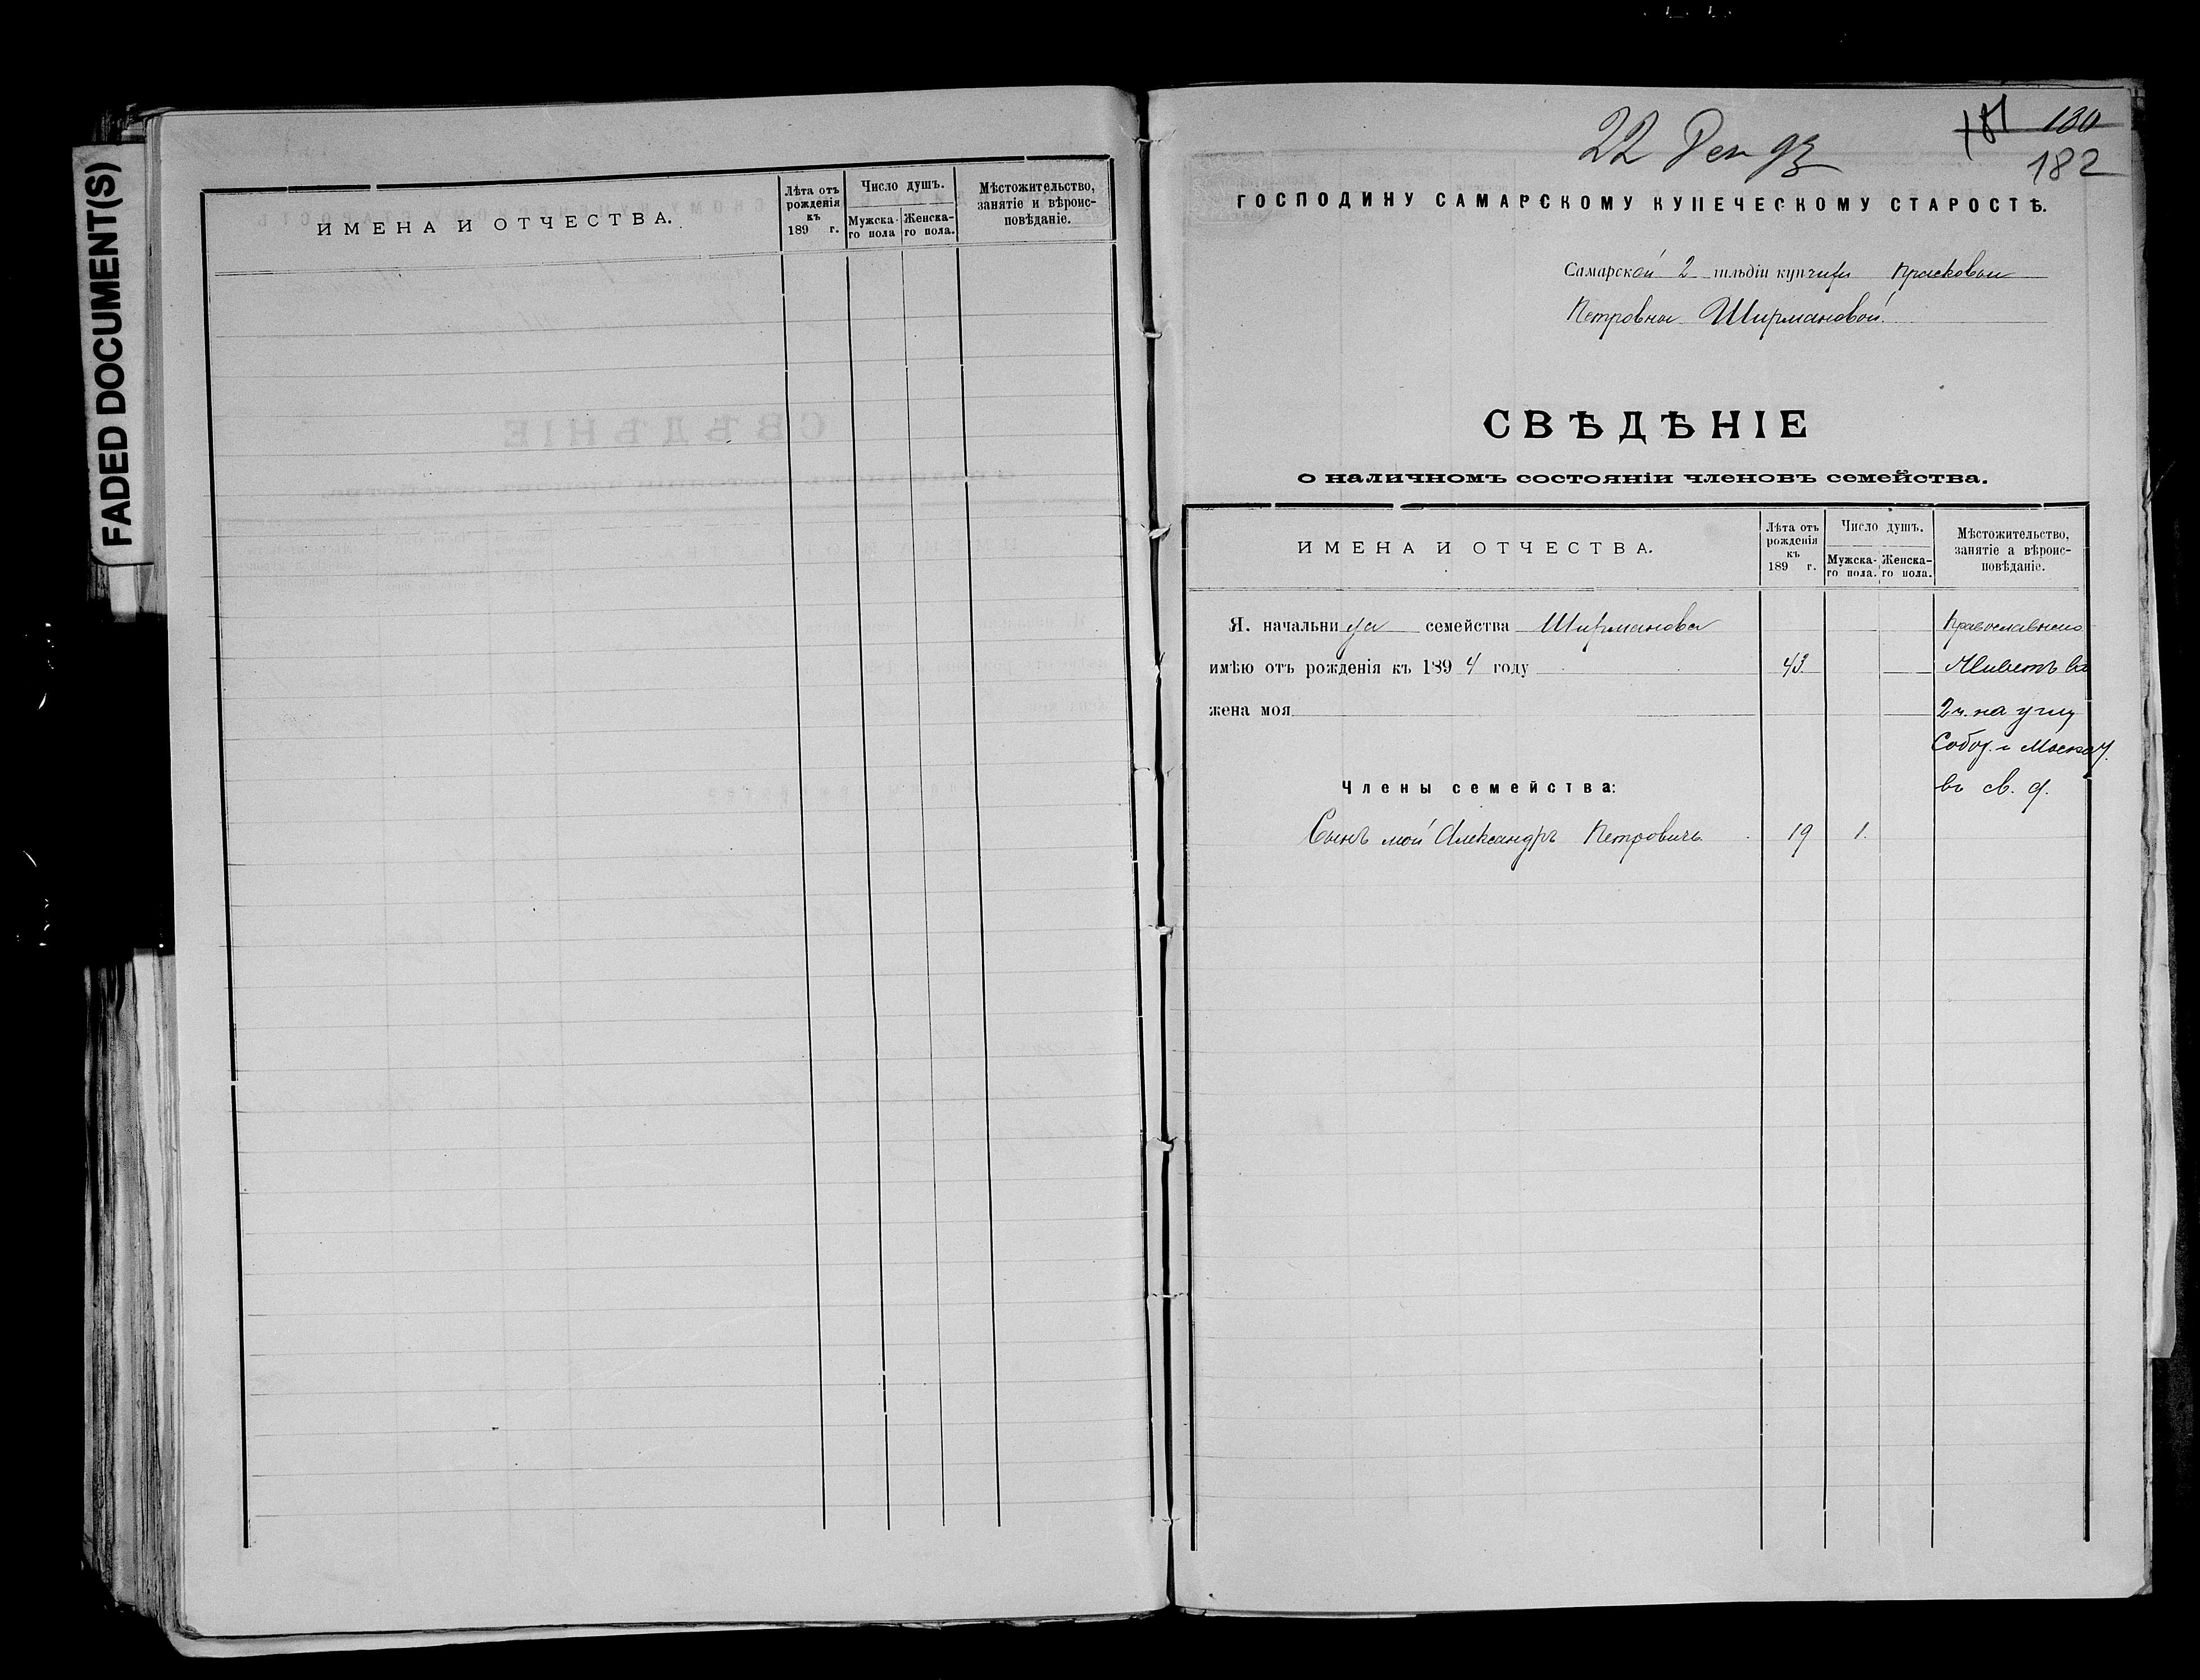 FADED DOCUMENT(S)
ИМЕНА И ОТЧЕСТВА.
Лѣта отъ рожденія къ 189 г.
Число душъ.
Мужска-го пола
Женска-го пола.
Мѣстожительство, занятіе и вѣроис-повѣданіе.
181 180
22 Дек 93
182
ГОСПОДИНУ САМАРСКОМУ КУПЕЧЕСКОМУ СТАРОСТѢ.
Самарской 2 гильдіи купчихи Прасковьи
Петровны Ширмановой
СВѢДѢНІЕ
о наличномъ состояніи членовъ семейства.
ИМЕНА И ОТЧЕСТВА.
Лѣта отъ рожденія къ 189 г.
Число душъ.
Мужска-го пола.
Женска-го пола.
Мѣстожительство, занятіе а вѣроис-повѣданіе.
Я. начальница семейства Ширманова Православнаго
имѣю отъ рожденія къ 1894 году 43 Живетъ въ
жена моя 2 ч. на углу
Собор. и Москов.
въ св. д.
Члены семейства:
Сынъ мой Александръ Петровичъ 19 1.